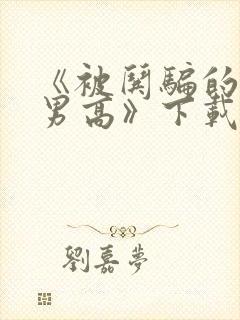 《被闃騙的
男高》下載
劉嘉夢